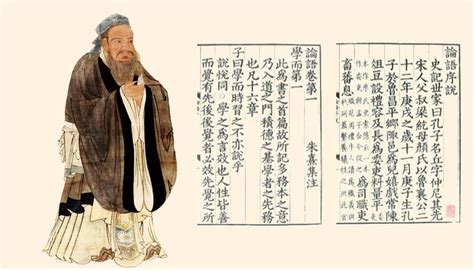 論語序說
史記世家曰孔子名丘字仲尼其先
宋人父叔梁紇母顏氏以魯襄公二
十二年庚戌之歲十一月庚子生孔
子於魯昌平鄉陬邑為兒嬉戲常陳
俎豆設禮容及長為委吏料量平
為司職吏
畜蕃息
論語卷第一
朱熹集注
學而第一
此為書之首篇故所記多務本之意
乃入道之門積德之基學者之先務
也凡十六章
子曰學而時習之不亦說乎
說悅同學之為言效也人性皆善
而覺有先後覺者必效先覺之所